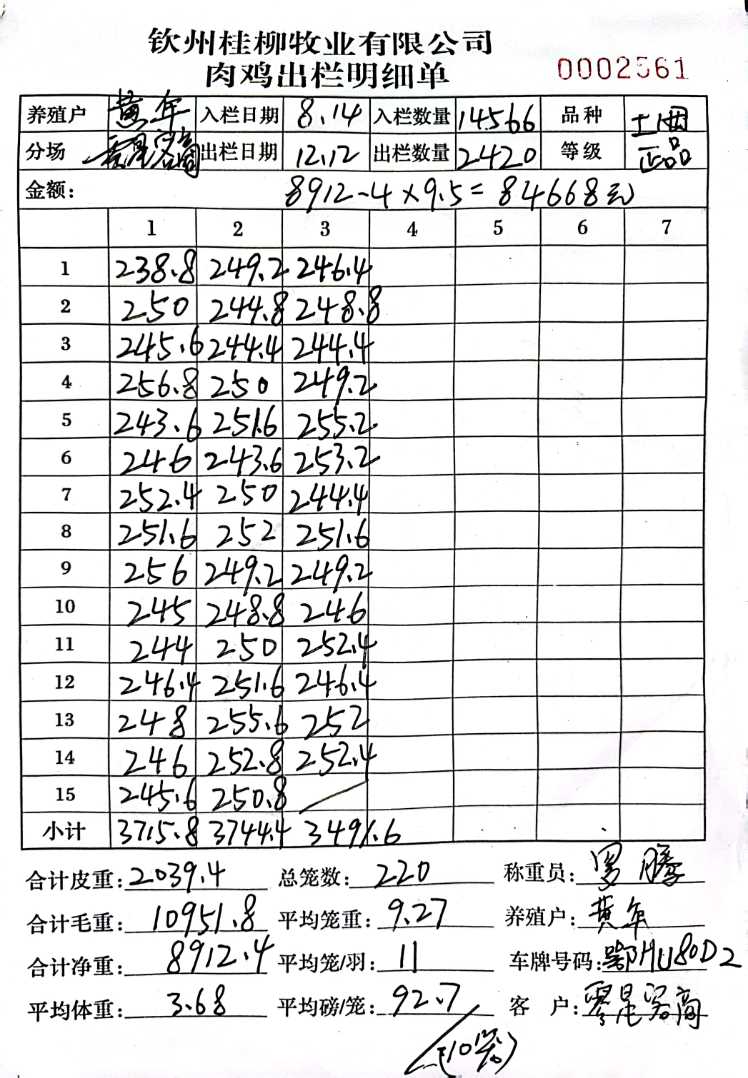 钦州桂柳牧业有限公司
肉鸡出栏明细单 0002561
养殖户 黄年 入栏日期 8.14 入栏数量 14566 品种 土
分场 零星客商 出栏日期 12.12 出栏数量 2420 等级 正品
金额: 8912-4×9.5=84668元
1 2 3 4 5 6 7
1 238.8 249.2 246.4
2 250 244.8 248.8
3 245.6 244.4 244.4
4 256.8 250 249.2
5 243.6 251.6 255.2
6 246 243.6 253.2
7 252.4 250 244.4
8 251.6 252 251.6
9 256 249.2 249.2
10 245 248.8 246
11 244 250 252.4
12 246.4 251.6 246.4
13 248 255.6 252
14 246 252.8 252.4
15 245.6 250.8
小计 3715.8 3744.4 3491.6
合计皮重:2039.4 总笼数:220 称重员:罗腾
合计毛重:10951.8 平均笼重:9.27 养殖户:黄年
合计净重:8912.4 平均笼/羽:11 车牌号码:鄂HU80D2
平均体重:3.68 平均磅/笼:92.7 客户:零星客商